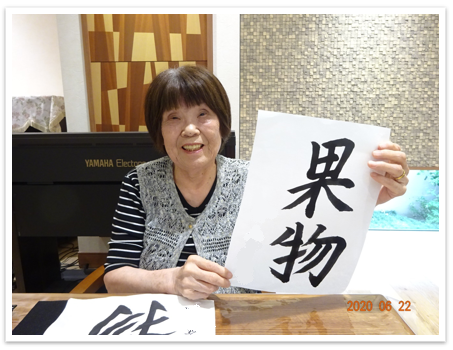 YAMAHA Electone
果物
2020 06 22